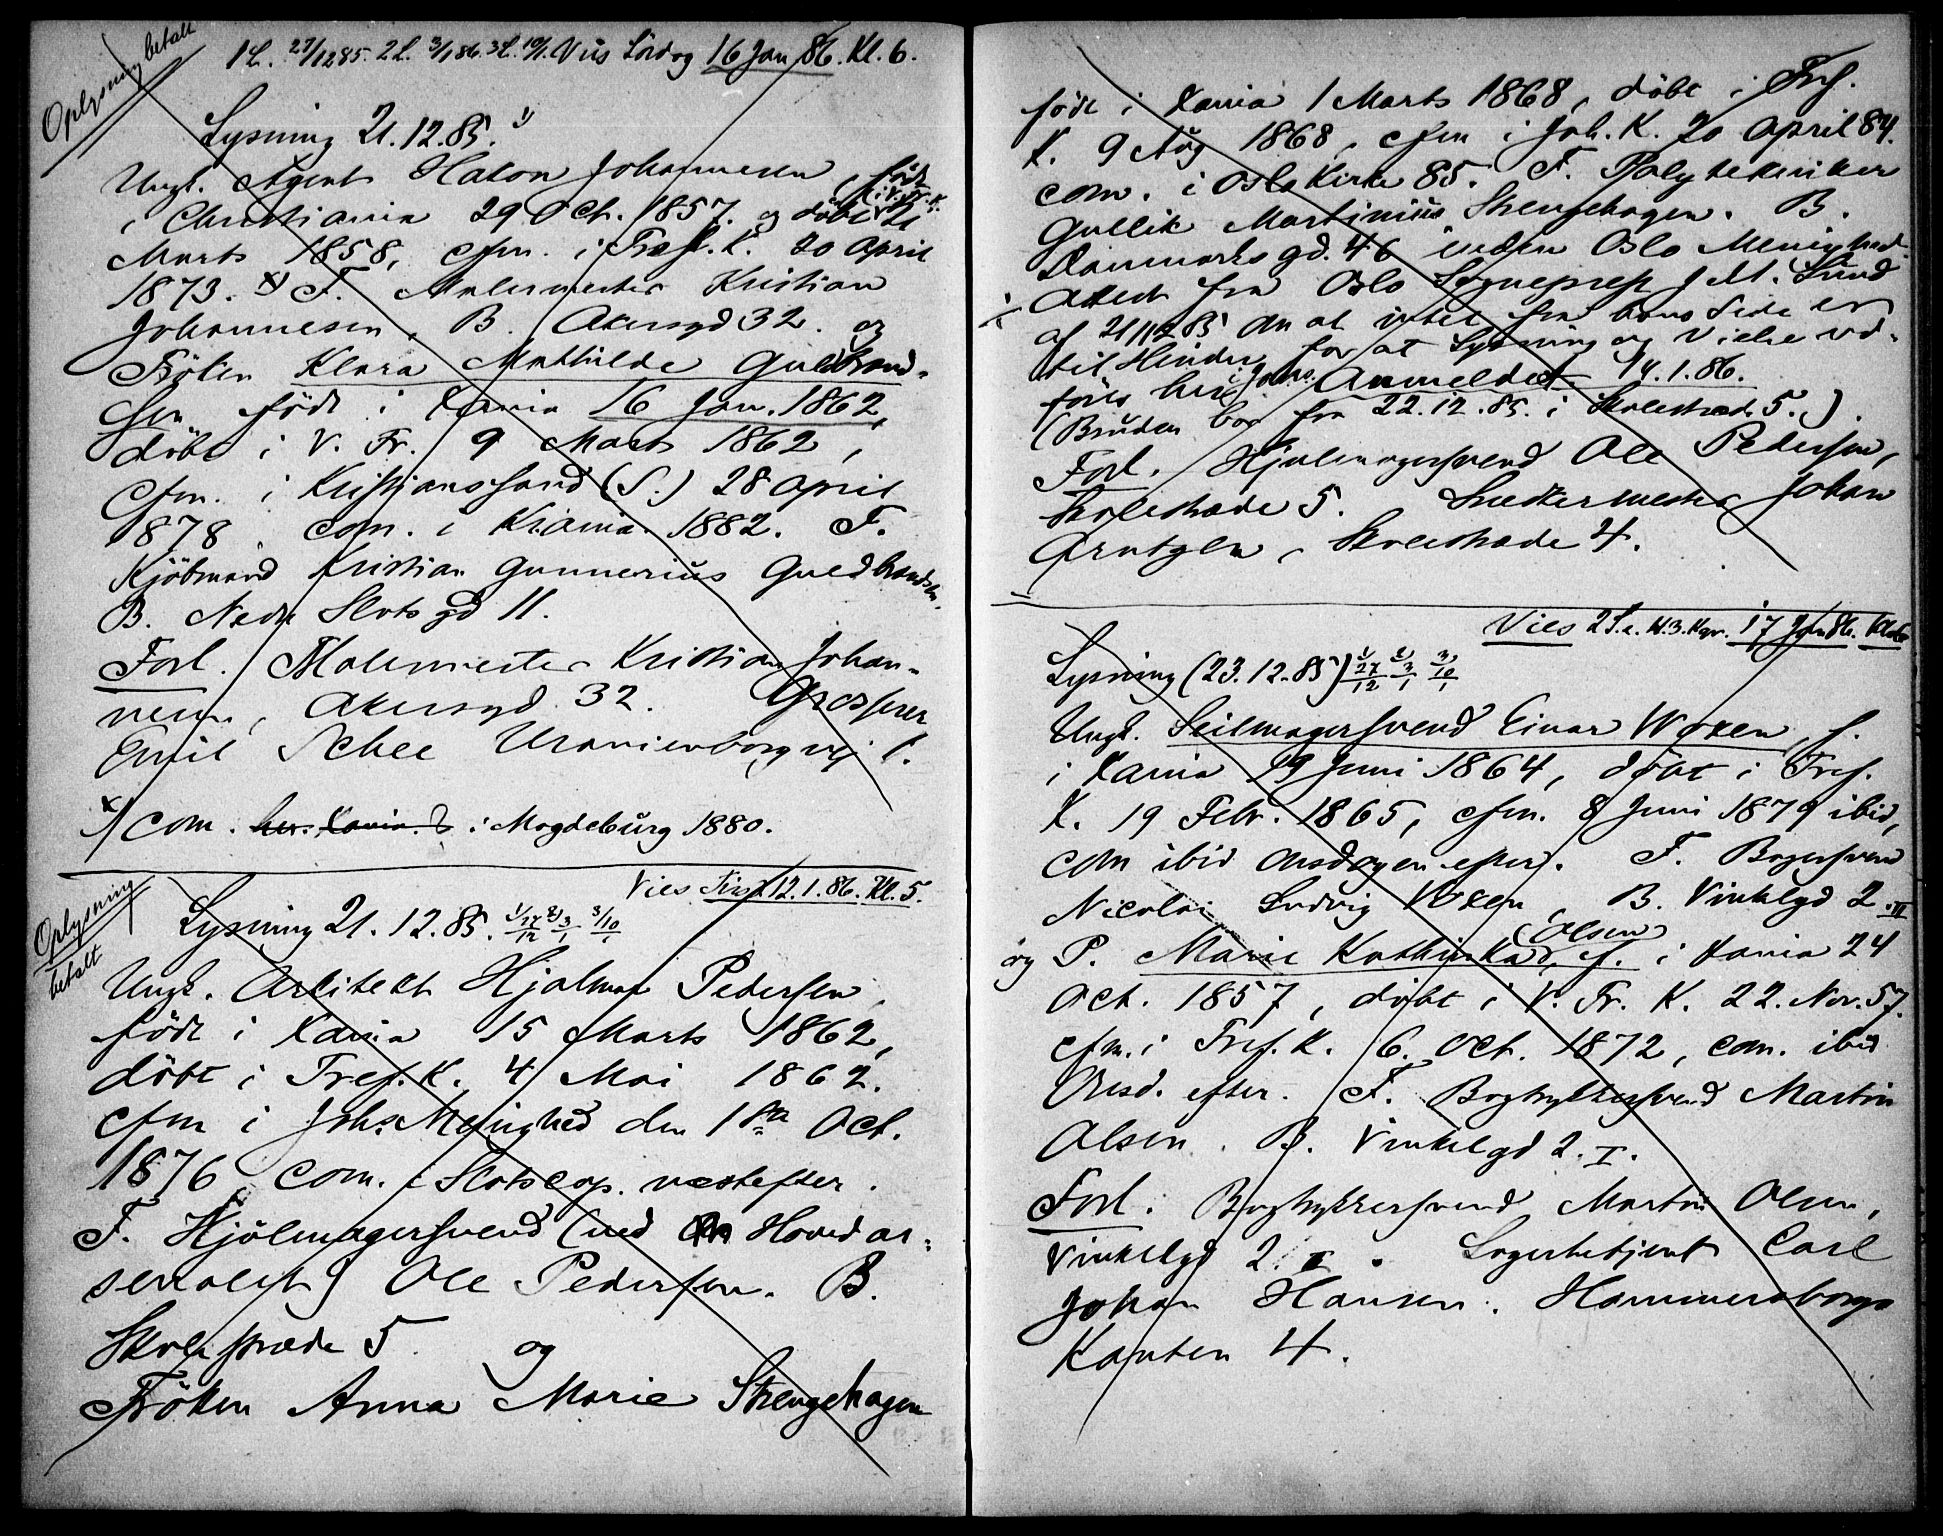 Oplysning betalt
1 L. 27/12 85. 2 L. 3/1 86. 3 L. 10/1. Vies Lördag 16 Jan 86. Kl. 6.
Lysning 21.12.85.
Ungk. Agent Hakon Johannesen, född
i Christiania 29 Oct. 1857. og döbt
Marts 1858, cfm. i Tref. K. 20 April
1873. x) F. Malermester Kristian
Johannesen, B. Akersgd 32. og
Fröken Klara Mathilde Guldbrand-
sen född i Xania 16 Jan. 1862,
döbt i V. Fr. 9 Marts 1862,
Cfm. i Kristianssand (S.) 28 April
1878. com. i Kiania 1882. F.
Kjöbmand Kristian Gunnerius Guldbrandsen,
B. Nedr Slotsgd 11.
Forl. Malermester Kristian Johan-
nesen, Akersgd. 32. Grosserer
Emil Schee Uranienborgvej 1.
x) com. her. Xania. i Magdeburg 1880.
Oplysning betalt
Vies Tirsd 12.1.86. Kl. 5.
Lysning 21.12.85. 1) 27/12 2) 3/1 3) 10/1
Ungk. Arkitekt Hjalmar Pedersen,
född i Xania 15 Marts 1862,
döbt i Tref. K. 4 Mai 1862.
cfm i Johs. Menighed den 1ste Oct.
1876 com. i Slotscap. næstefter.
F. Hjulmagersvend (ved Hovedar-
senalet) Ole Pedersen. B.
Skolestræde 5. og
Fröken Anna Marie Strengehagen
född i Xania 1 Marts 1868, döbt i Tref.
K. 9 Aug 1868, cfm i Joh. K. 20 April 84.
com. i Oslo Kirke 85. F. Polytekniker
Gullik Martinius Strengehagen. B.
Danmarksgd. 46 inden Oslo Menighed
Attest fra Oslo Sognepræst J. M. Lund
af 21/12 85 om at intet fra hans Side er
til Hinder for at Lysning og Vielse ud-
föres her i Johs. Anmeldet 14.1.86.
(Bruden bor fra 22.12.85. i Skolestræd. 5.)
Forl. Hjulmagersvend Ole Pedersen,
Skolestræde 5. Snedkermester Johan
Arntzen, Skolestræde 4.
Vies 17 Jan 86.
Lysning (23.12.85) 1) 27/12 2) 3/1 3) 10/1
Ungk. Seilmagersvend Einar Woxen, f.
i Xania 19 Juni 1864, döbt i Tref.
K. 19 Febr. 1865, cfm. 8 Juni 1879 ibid,
com ibid onsdagen efter. F. Bagersvend
Nicolai Ludvig Woxen, B. Vinkelgd 2. II
og P. Marie Kathinka (Olsen), f. i Xania 24
Oct. 1857, döbt i V. Fr. K. 22. Nov. 57.
cfm. i Tref. K. 6. Oct. 1872, com. ibid
Onsd. efter. F. Bogtrykkersvend Martin
Olsen. B. Vinkelgd 2. I.
Forl. Bogtrykkersvend Martin Olsen,
Vinkelgd 2. I. Lagerbetjent Carl
Johan Hansen. Hammersborgs
Kanten 4.